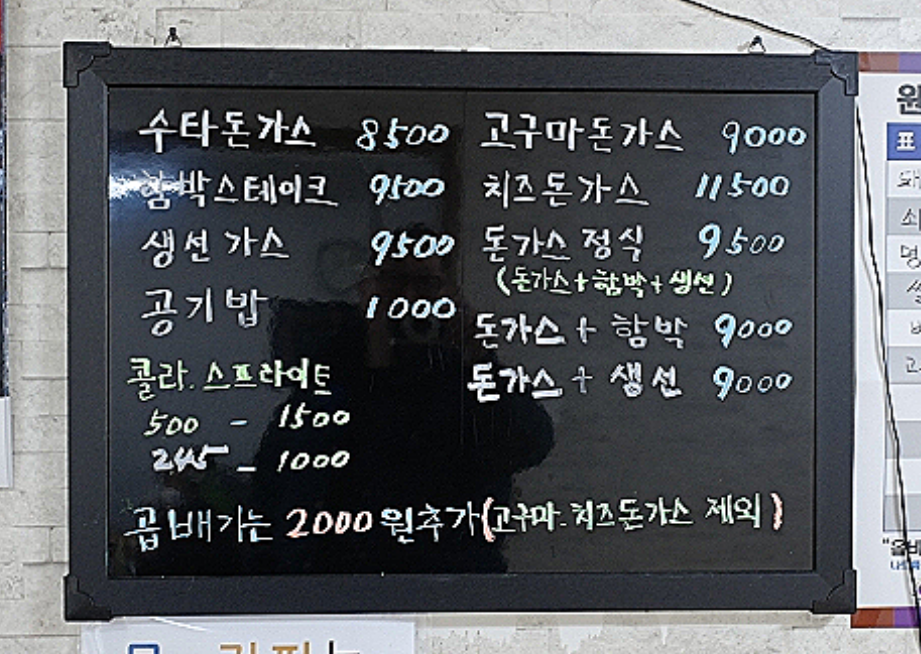 수타돈가스 8500
함박스테이크 9500
생선가스 9500
공기밥 1000
콜라.스프라이트
500 - 1500
245 - 1000
고구마돈가스 9000
치즈돈가스 11500
돈가스정식 9500
(돈가스+함박+생선)
돈가스 + 함박 9000
돈가스 + 생선 9000
곱배기는 2000원추가(고구마.치즈돈가스 제외)
원
표